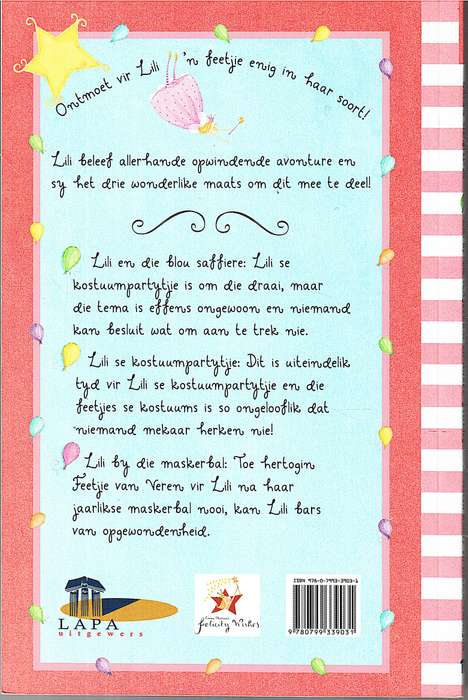 Ontmoet vir Lili 'n feetjie enig in haar soort!
Lili beleef allerhande opwindende avonture en
sy het drie wonderlike maats om dit mee te deel!
Lili en die blou saffiere: Lili se
kostuumpartytjie is om die draai, maar
die tema is effens ongewoon en niemand
kan besluit wat om aan te trek nie.
Lili se kostuumpartytjie: Dit is uiteindelik
tyd vir Lili se kostuumpartytjie en die
feetjies se kostuums is so ongelooflik dat
niemand mekaar herken nie!
Lili by die maskerbal: Toe hertogin
Feetjie van Veren vir Lili na haar
jaarlikse maskerbal nooi, kan Lili bars
van opgewondenheid.
LAPA
uitgewers
Felicity Wishes
ISBN 978-0-7993-3903-1
9 780799 339031